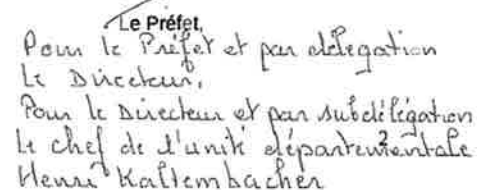 Le Préfet,
Pour le Préfet et par délégation
Le Directeur,
Pour le Directeur et par subdélégation
Le chef de l'unité départementale
Henri Kaltembacher